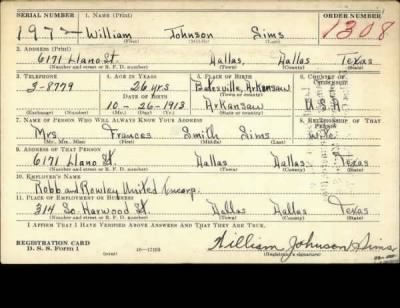 SERIAL NUMBER 1. NAME (Print) ORDER NUMBER
197- William Johnson Sims 1308
(First) (Middle) (Last)
2. ADDRESS (Print)
6171 Llano St. Dallas, Dallas Texas
(Number and street or R. F. D. number) (Town) (County) (State)
3. TELEPHONE 4. AGE IN YEARS 5. PLACE OF BIRTH 6. COUNTRY OF CITIZENSHIP
3-8779 26 yrs Batesville, Arkansaw
DATE OF BIRTH (Town or county)
10-26-1913 Arkansaw U.S.A.
(Exchange) (Number) (Mo.) (Day) (Yr.) (State or country)
7. NAME OF PERSON WHO WILL ALWAYS KNOW YOUR ADDRESS 8. RELATIONSHIP OF THAT PERSON
Mrs Frances Smith Sims Wife
(Mr., Mrs., Miss) (First) (Middle) (Last)
9. ADDRESS OF THAT PERSON
6171 Llano St. Dallas Dallas Texas
(Number and street or R. F. D. number) (Town) (County) (State)
10. EMPLOYER'S NAME
Robb and Rowley United Incorp.
11. PLACE OF EMPLOYMENT OR BUSINESS
314 So. Harwood St Dallas Dallas Texas
(Number and street or R. F. D. number) (Town) (County) (State)
I AFFIRM THAT I HAVE VERIFIED ABOVE ANSWERS AND THAT THEY ARE TRUE.
REGISTRATION CARD
D. S. S. Form 1 (over) William Johnson Sims
(Registrant's signature)